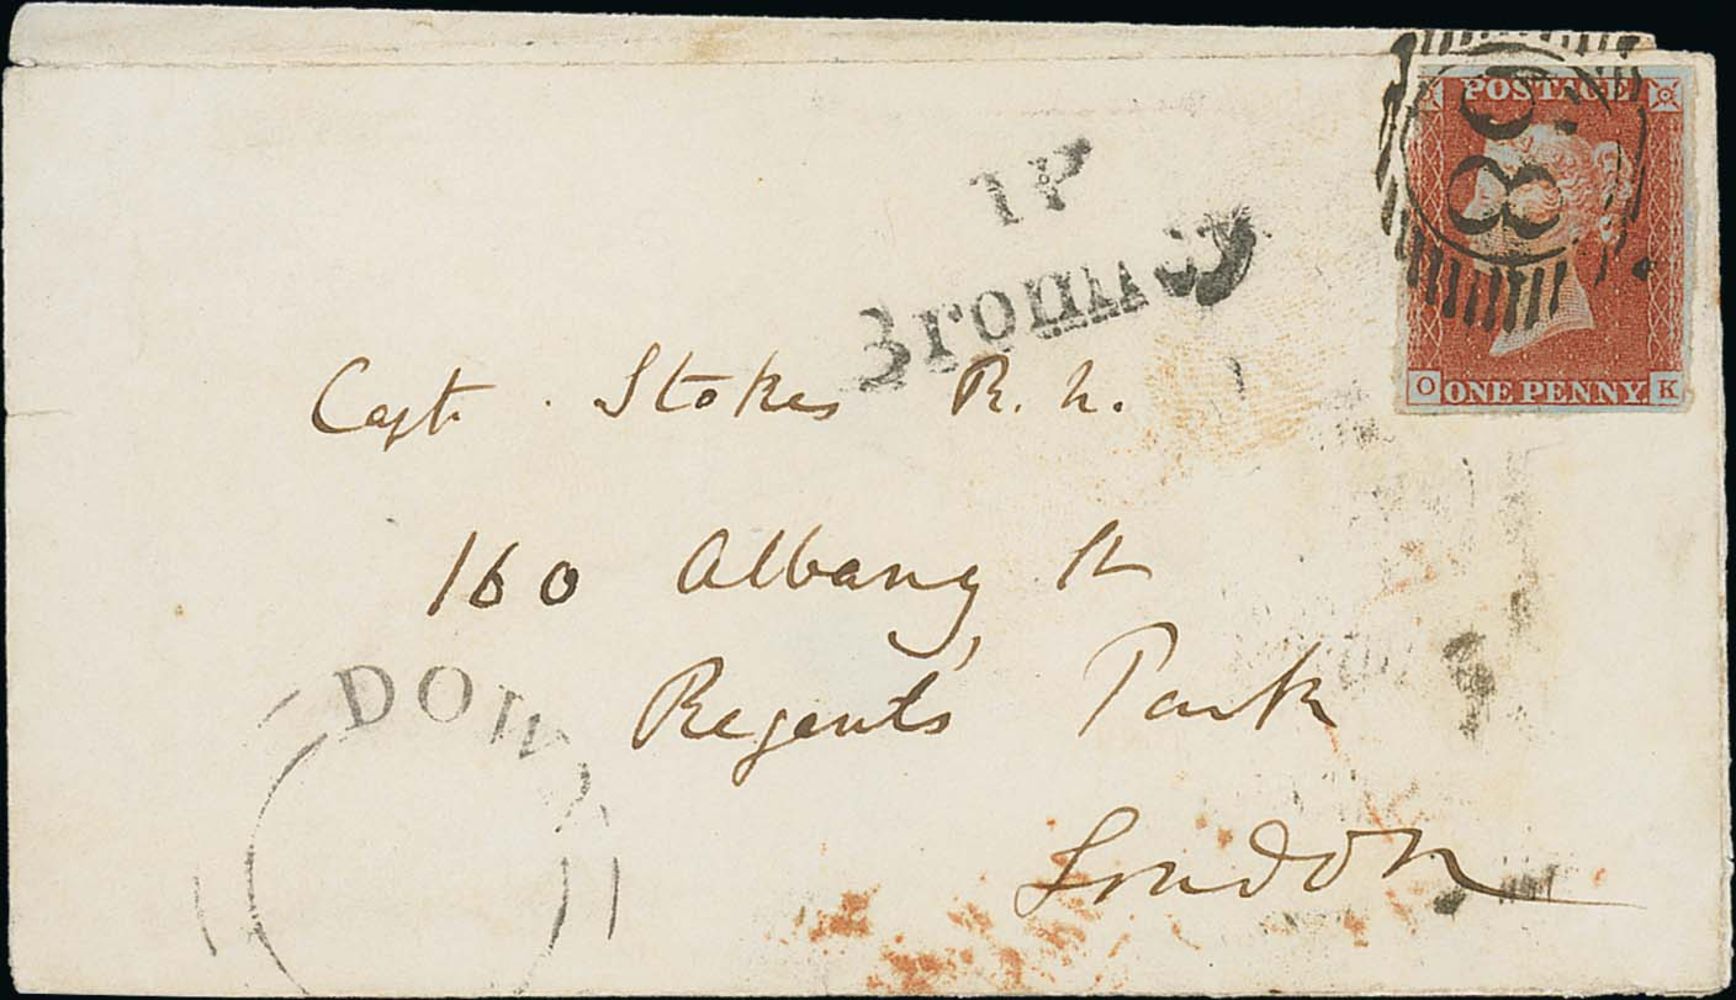 POSTAGE
88
O ONE PENNY K
1P
Bromley
Capt. Stokes R. N.
160 Albany St
Regents' Park
London
DOWN